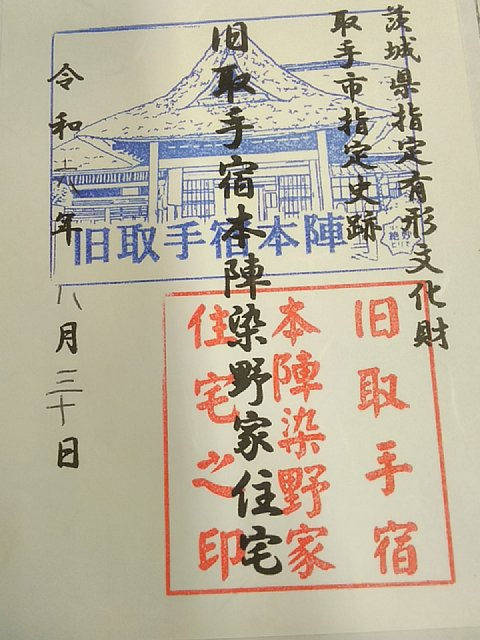 茨城県指定有形文化財
取手市指定史跡
旧取手宿本陣染野家住宅
令和六年八月三十日
旧取手宿本陣
旧取手宿
本陣染野家
住宅之印